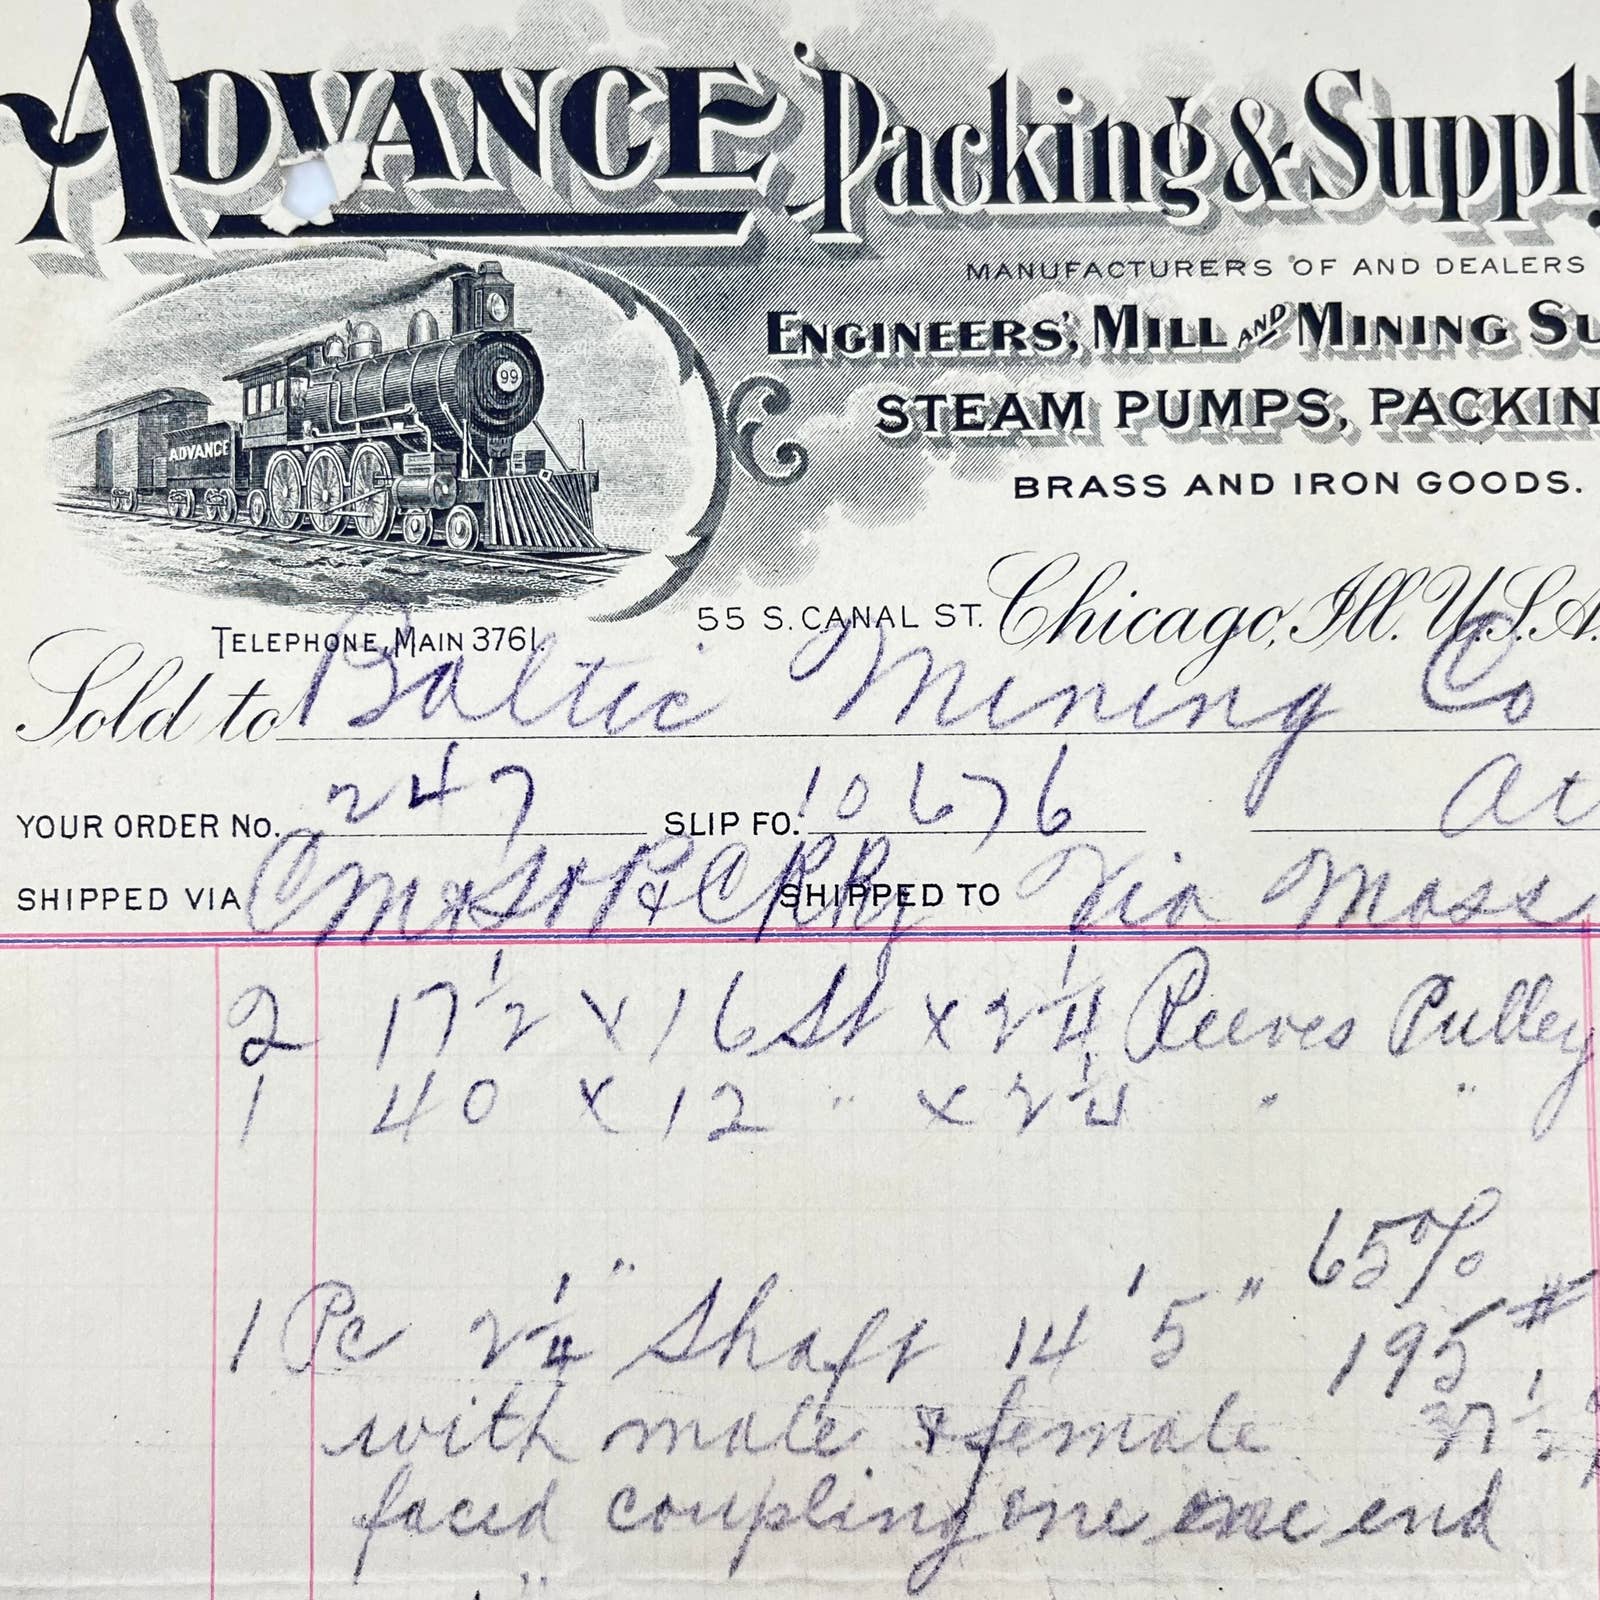 ADVANCE Packing & Supply
MANUFACTURERS OF AND DEALERS
ENGINEERS', MILL AND MINING SU
STEAM PUMPS, PACKIN
BRASS AND IRON GOODS.
99
ADVANCE
TELEPHONE, MAIN 3761.
55 S. CANAL ST. Chicago, Ill. U.S.A.
Sold to Baltic Mining Co
YOUR ORDER No. 247 SLIP FO. 10676 At
SHIPPED VIA CM & St P & C RRy SHIPPED TO Via Mass
2 17 1/2 x 16 St x 2 1/4 Reeves Pulley
1 40 x 12 " x 2 1/4 " "
65%
1 Pc 2 1/4" Shaft 14' 5" 195#
with male & female 37 1/2
faced coupling one end